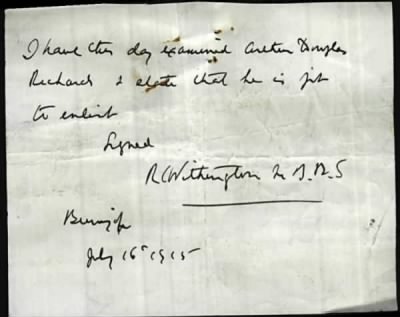 I have this day examined Arthur Douglas
Richards & state that he is fit
to enlist
Signed
R C Withington M.B.B.S
July 16th 1915